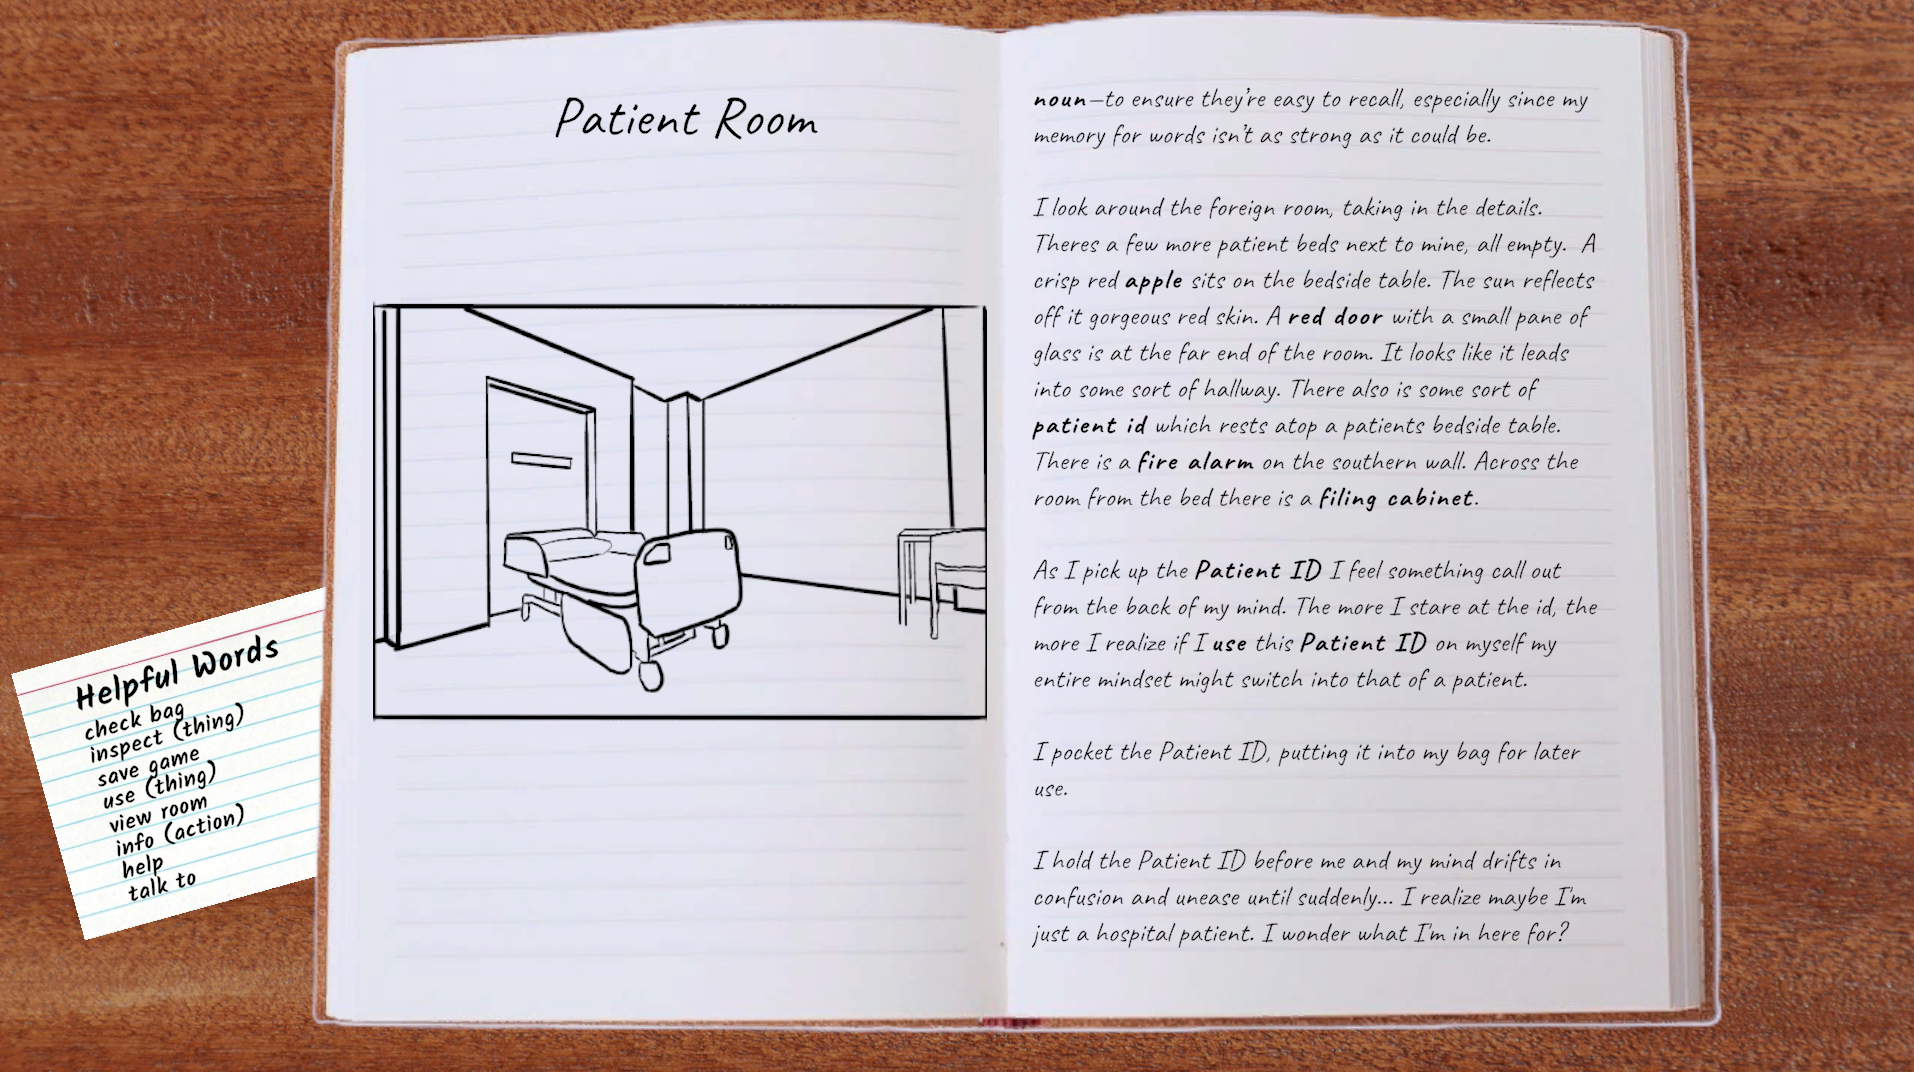 Patient Room
noun—to ensure they're easy to recall, especially since my
memory for words isn't as strong as it could be.
I look around the foreign room, taking in the details.
Theres a few more patient beds next to mine, all empty. A
crisp red apple sits on the bedside table. The sun reflects
off it gorgeous red skin. A red door with a small pane of
glass is at the far end of the room. It looks like it leads
into some sort of hallway. There also is some sort of
patient id which rests atop a patients bedside table.
There is a fire alarm on the southern wall. Across the
room from the bed there is a filing cabinet.
As I pick up the Patient ID I feel something call out
from the back of my mind. The more I stare at the id, the
more I realize if I use this Patient ID on myself my
entire mindset might switch into that of a patient.
I pocket the Patient ID, putting it into my bag for later
use.
I hold the Patient ID before me and my mind drifts in
confusion and unease until suddenly... I realize maybe I'm
just a hospital patient. I wonder what I'm in here for?
Helpful Words
check bag
inspect (thing)
save game
use (thing)
view room
info (action)
help
talk to